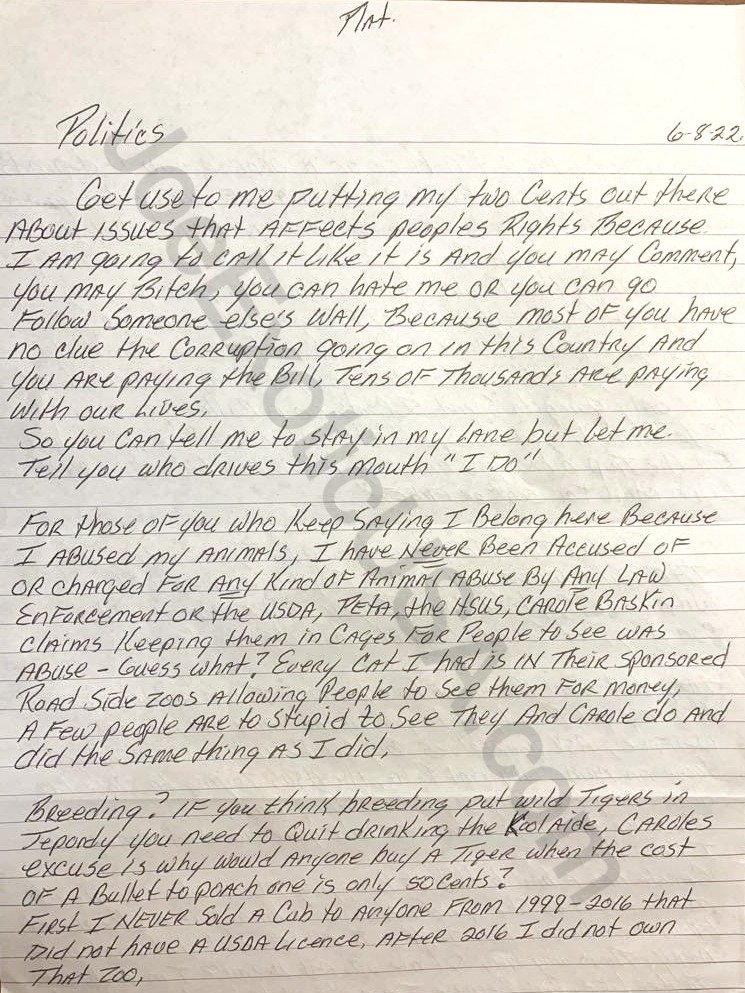 Mat.
Politics 6-8-22.
Get use to me putting my two Cents out there
About issues that Affects peoples Rights Because
I am going to call it like it is And you may Comment,
you may Bitch, you can hate me or you can go
Follow Someone else's Wall, Because most of you have
no clue the Corruption going on in this Country And
you Are paying the Bill, Tens of Thousands Are paying
With our Lives.
So you can tell me to stay in my Lane but let me
Tell you who drives this mouth "I Do"
For those of you who Keep Saying I Belong here Because
I Abused my Animals, I have Never Been Accused of
or charged For Any Kind of Animal Abuse By Any Law
Enforcement or the USDA, Peta, the HSUS, Carole Baskin
claims Keeping them in Cages For People to See was
Abuse - Guess what? Every Cat I had is In Their Sponsored
Road Side Zoos Allowing People to See them For money,
A Few people Are to Stupid to See They And Carole do And
did the Same thing As I did,
Breeding? If you think breeding put wild Tigers in
Jepordy you need to Quit drinking the Koolaide, Caroles
excuse is why would Anyone buy A Tiger when the cost
of A Bullet to poach one is only 50 cents?
First I Never Sold A Cub to Anyone From 1999-2016 that
Did not have A USDA Licence, After 2016 I did not own
That Zoo,
JoeExoticUSA.com